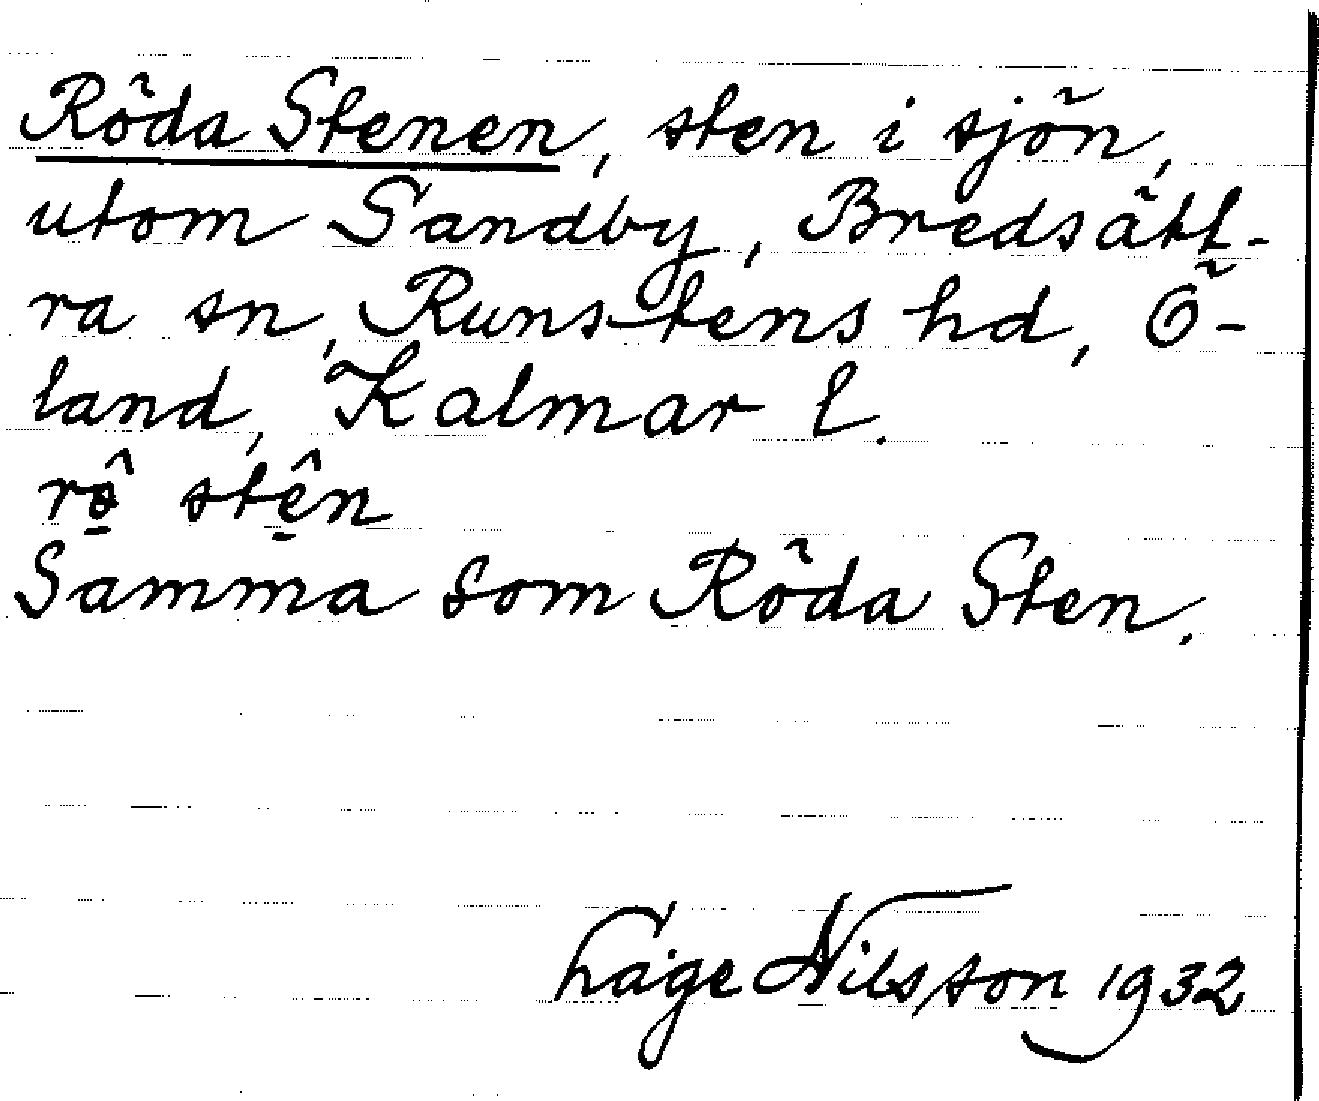 Röda Stenen, sten i sjön,
utom Sandby, Bredsätt-
ra sn, Runstens hd, Ö-
land, Kalmar l.
rö̱̂ stê̱n
Samma som Röda Sten.
Låge Nilsson 1932